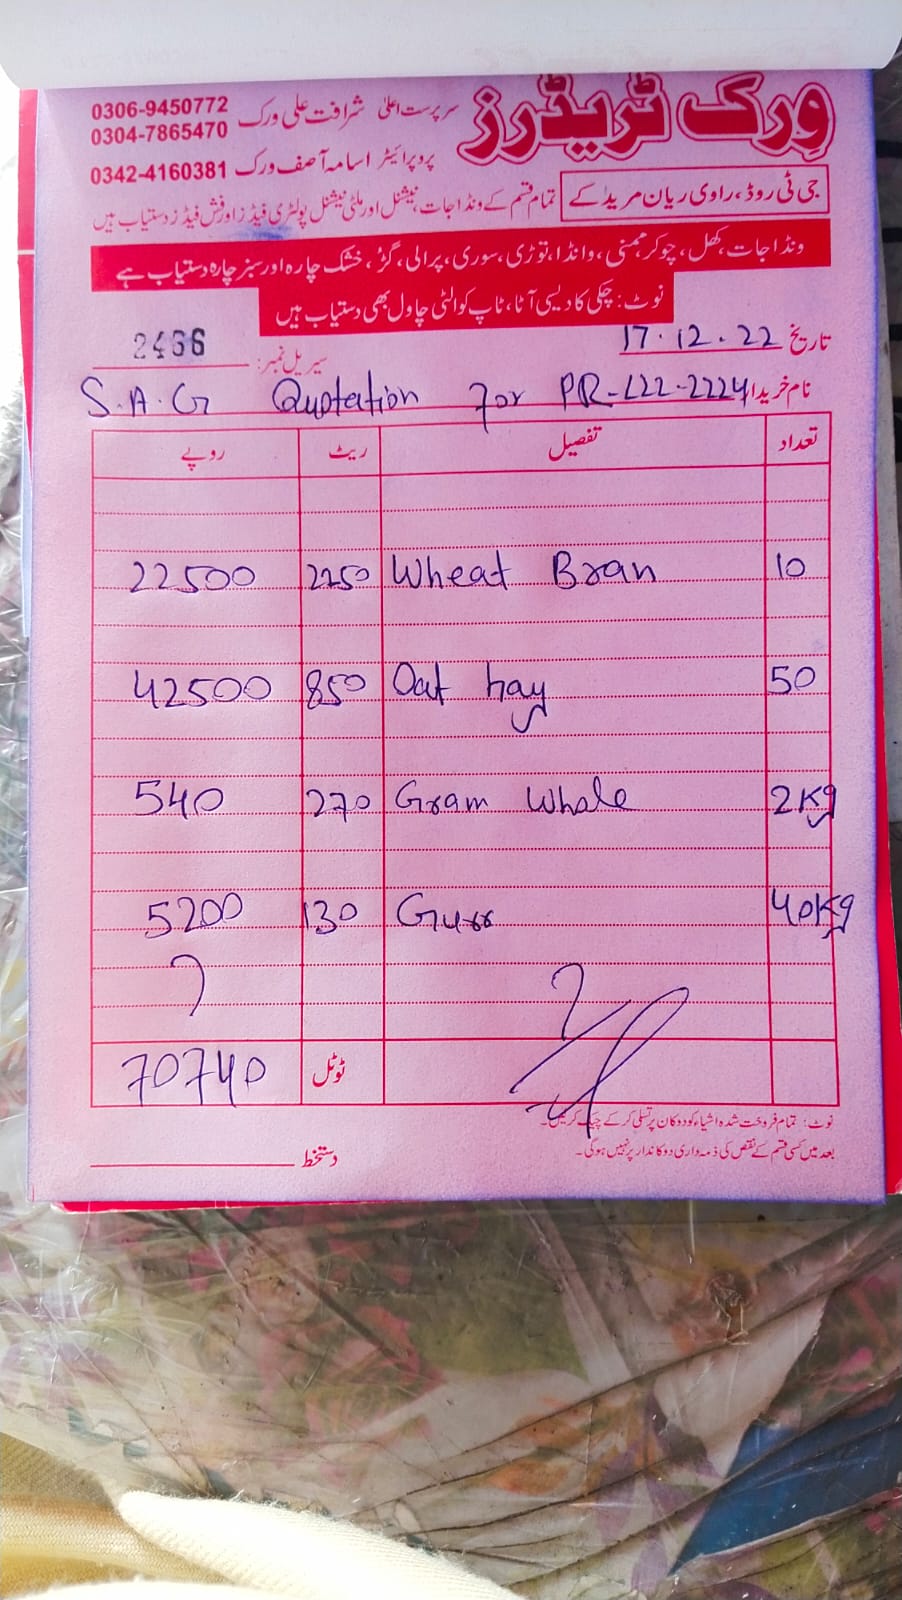 ورک ٹریڈرز
سرپرست اعلیٰ شرافت علی ورک 0306-9450772
0304-7865470
پروپرائیٹر اسامہ آصف ورک 0342-4160381
جی ٹی روڈ، راوی ریان مریدکے
تمام قسم کے ونڈا جات، نیشنل اور ملٹی نیشنل پولٹری فیڈز اور فش فیڈز دستیاب ہیں
ونڈا جات، کھل، چوکر، ممنی، وانڈا، توڑی، سوری، پرالی، گڑ، خشک چارہ اور سبز چارہ دستیاب ہے
نوٹ: چکی کا دیسی آٹا، ٹاپ کوالٹی چاول بھی دستیاب ہیں
تاریخ 17.12.22
سیریل نمبر: 2466
نام خریدار S.A.G Quotation for PR-L22-2224
تعداد تفصیل ریٹ روپے
10 Wheat Bran 2250 22500
50 Oat hay 850 42500
2Kg Gram Whole 270 540
40Kg Gurr 130 5200
ٹوٹل 70740
نوٹ: تمام فروخت شدہ اشیاء کو دوکان پر تسلی کر کے چیک کر لیں۔
بعد میں کسی قسم کے نقص کی ذمہ داری دوکاندار پر نہیں ہوگی۔
دستخط